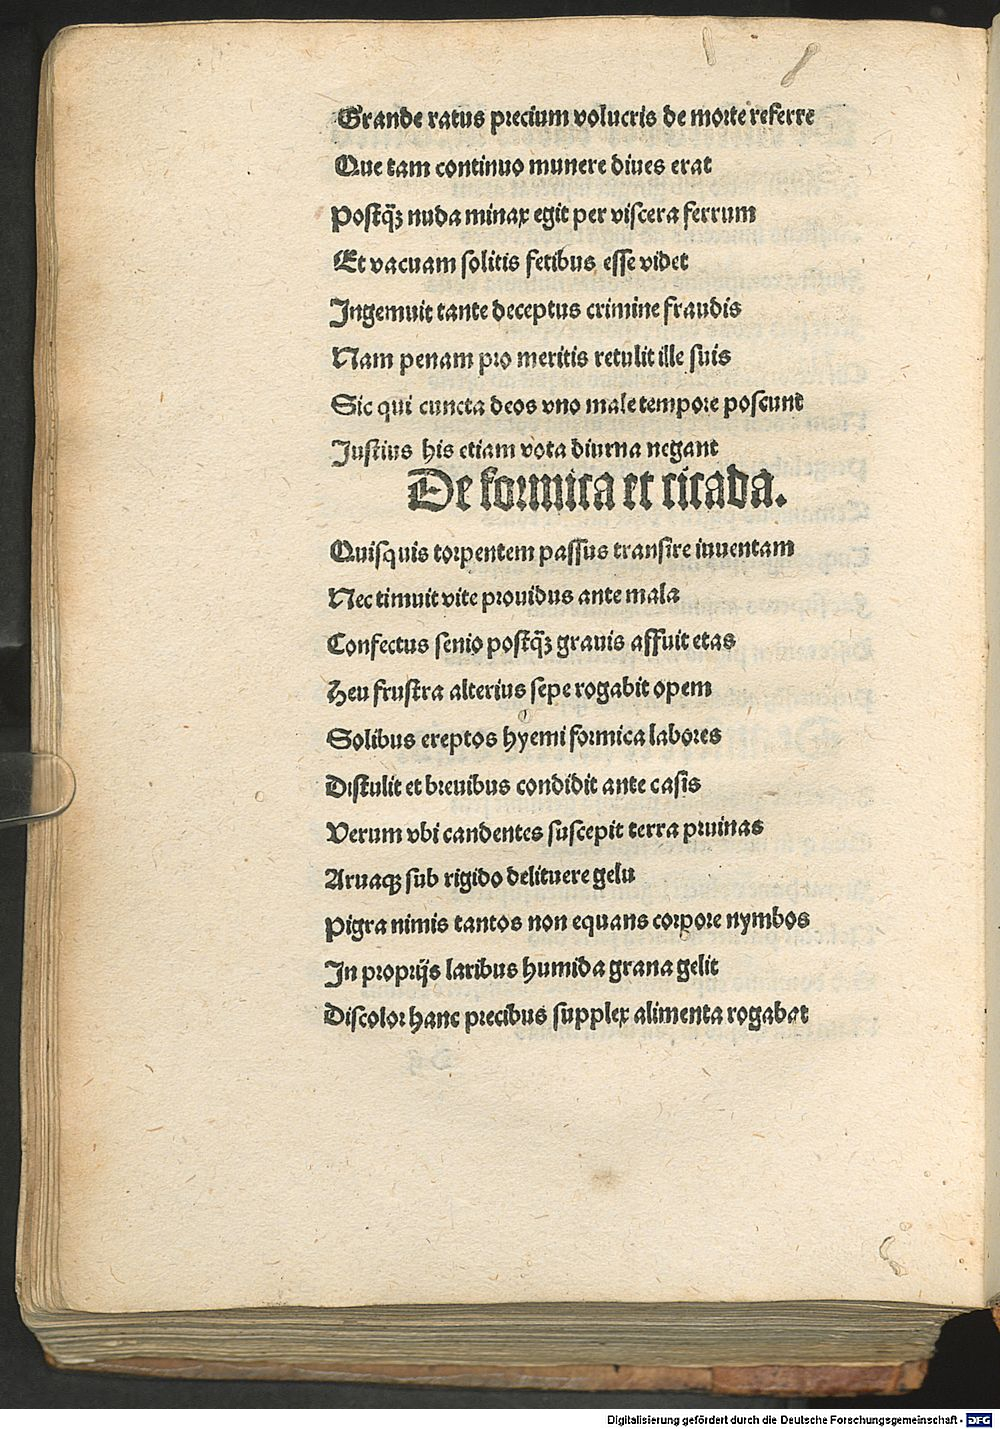 Grande ratus precium volucris de morte referre
Que tam continuo munere diues erat
Postqʒ nuda minax egit per viscera ferrum
Et vacuam solitis fetibus esse videt
Ingemuit tante deceptus crimine fraudis
Nam penam pro meritis retulit ille suis
Sic qui cuncta deos vno male tempore poscunt
Justius his etiam vota diurna negant
De formica et cicada.
Quisquis torpentem passus transire iuuentam
Nec timuit vite prouidus ante mala
Confectus senio postqʒ grauis affuit etas
Heu frustra alterius sepe rogabit opem
Solibus ereptos hyemi formica labores
Distulit et breuibus condidit ante casis
Verum vbi candentes suscepit terra pruinas
Aruaqʒ sub rigido delituere gelu
Pigra nimis tantos non equans corpore nymbos
In proprijs laribus humida grana gelit
Discolor hanc precibus supplex alimenta rogabat
Digitalisierung gefördert durch die Deutsche Forschungsgemeinschaft - DFG